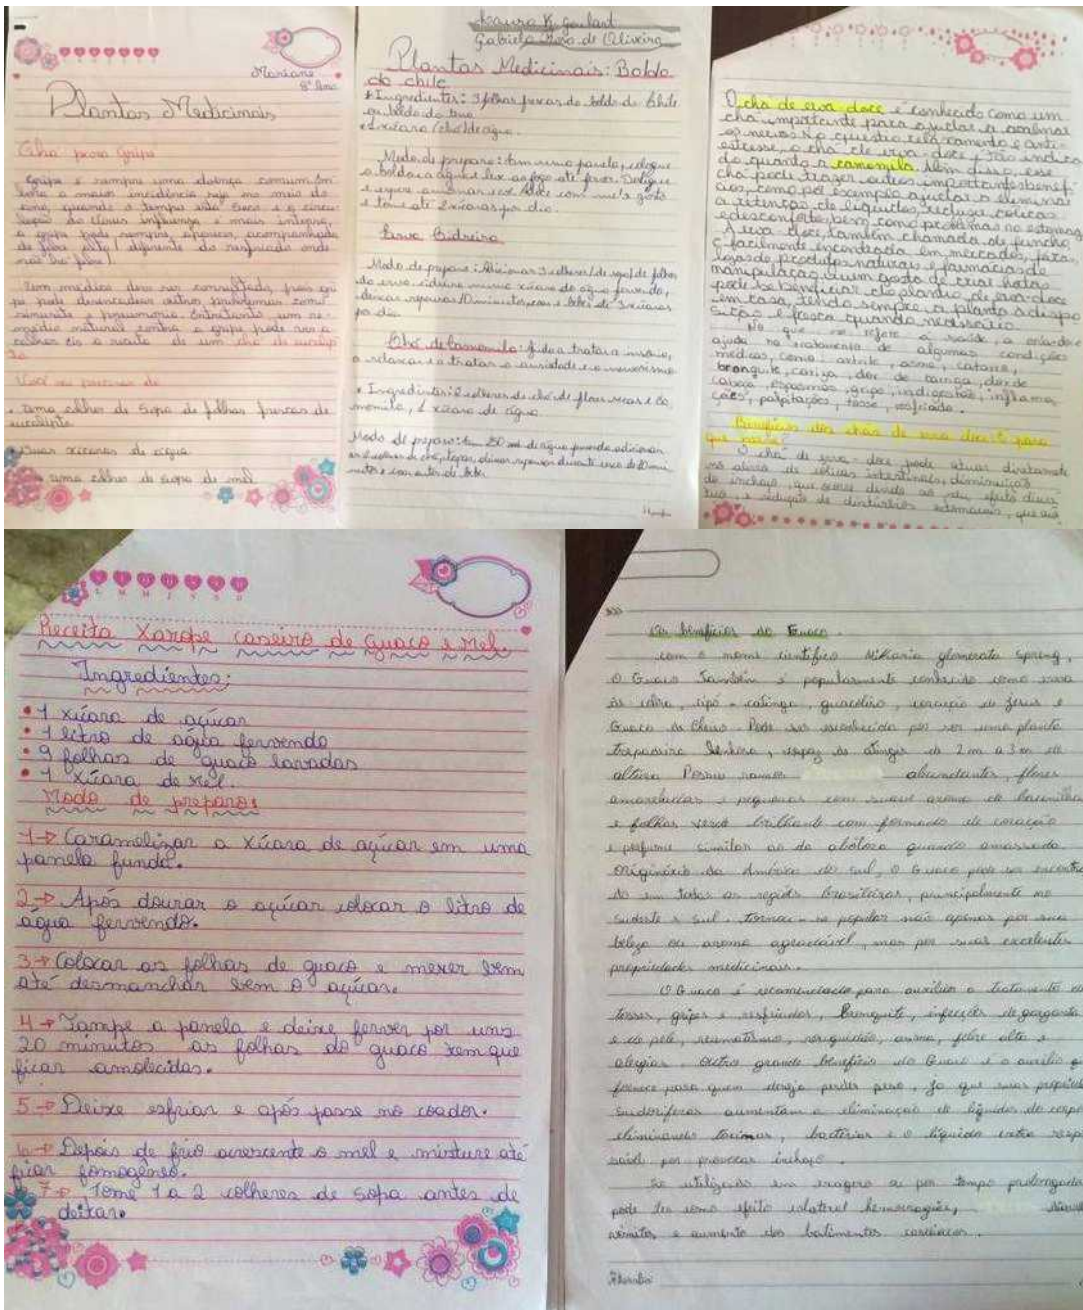 Mariane
8º Ano
Plantas Medicinais
Chá para Gripe
Gripe é sempre uma doença comum
a maior incidência seja no meio do
ano, quando o tempo está seco e a circu
lação do vírus influenza é mais intensa,
a gripe pode sempre, aparece, acompanhada
de febre alta (diferente do resfriado onde
não há febre).
Um médico deve ser consultado, pois gri
pe pode desencadear outros problemas como
sinusite e pneumonia. Entretanto um re-
médio natural contra a gripe pode ser a
receita de um chá de eucalip
to.
Você vai precisar de
• uma colher de sopa de folhas frescas de
eucalipto
Duas xícaras de água
uma colher de sopa de mel
Laura K. Goulart
Gabriela de Oliveira
Plantas Medicinais: Boldo
do chile
* Ingredientes: 3 folhas frescas do boldo do Chile
ou boldo da
• 1 xícara (chá) de água.
Modo de preparo: Em uma panela, coloque
o boldo a água e leve ao fogo até ferver. Desligue
e espere amornar coe. Adoce com mel a gosto
e tome até 2 xícaras por dia.
Erva Cidreira
Modo de preparo: Adicionar 3 colheres de sopa de folhas
da erva cidreira numa xícara de água fervendo,
deixar repousar 10 minutos, coar e beber de 3 xícaras
por dia.
Chá de Camomila: Ajuda a tratar a insônia,
a relaxar e a tratar a ansiedade e o nervosismo
* Ingredientes: 2 colheres de chá de flores secas de ca
momila, 1 xícara de água.
Modo de preparo: Em 250 ml de água fervendo adicionar
as 2 colheres de chá, tapar, deixar repousar durante cerca de 10 mi
nutos e coar antes de beber.
O chá de erva-doce é conhecido como um
chá importante para ajudar a acalmar
os nervos. No quesito relaxamento e anti-
estresse, o chá de erva-doce é tão indica
do quanto a camomila. Além disso, esse
chá pode trazer outros importantes benefí
cios, como por exemplo ajudar a eliminar
a retenção de líquidos, reduzir cólicas
e desconforto, bem como problemas no estômago.
A erva-doce, também chamada de funcho,
é facilmente encontrada em mercados, feiras,
lojas de produtos naturais e farmácias de
manipulação. Quem gosta de criar hortas
pode se beneficiar do plantio de erva-doce
em casa, tendo sempre, a planta a dispo
sição e fresca quando necessário.
No que se refere a saúde, a erva-doce
ajuda no tratamento de algumas condições
médicas, como: artrite, asma, catarro,
bronquite, coriza, dor de barriga, dor de
cabeça, espasmos, gripe, indigestão, inflama
ções, palpitações, tosse, resfriado.
Benefícios dos chás de erva doce:
que
O chá de erva-doce pode atuar diretamente
no alívio de cólicas intestinais, diminuição
do inchaço, que ocorre devido ao seu efeito diuré
tico, e redução de distúrbios estomacais, que
Receita Xarope caseiro de Guaco e Mel.
Ingredientes:
• 1 xícara de açúcar
• 1 litro de água fervendo
• 9 folhas de guaco lavadas
• 1 xícara de mel.
Modo de preparo:
1→ Caramelizar a xícara de açúcar em uma
panela funda.
2→ Após dourar o açúcar colocar o litro de
água fervendo.
3→ Colocar as folhas de guaco e mexer bem
até desmanchar bem o açúcar.
4→ Tampe a panela e deixe ferver por uns
20 minutos as folhas do guaco tem que
ficar amolecidas.
5→ Deixe esfriar e após passe no coador.
6→ Depois de frio acrescente o mel e misture até
ficar homogêneo.
7→ Tome 1 a 2 colheres de sopa antes de
deitar.
Os benefícios do Guaco.
Com o nome científico Mikania glomerata spreng,
o Guaco também é popularmente conhecido como erva
de cobra, cipó-catinga, guacoliso, coração de Jesus e
Guaco de Cheiro. Pode ser reconhecida por ser uma planta
trepadeira lenhosa, capaz de atingir de 2 m a 3 m de
altura. Possui ramos abundantes, flores
amareladas e pequenas com suave aroma de baunilha
e folhas verde brilhante com formado de coração
e perfume similar ao da abóbora quando amassada.
Originário da América do sul, o Guaco pode ser encontra
do em todas as regiões brasileiras, principalmente no
sudeste e sul. Tornou-se popular não apenas por sua
beleza ou aroma agradável, mas por suas excelentes
propriedades medicinais.
O Guaco é recomendado para auxiliar o tratamento de
tosses, gripes e resfriados, bronquite, infecções de garganta
e da pele, reumatismo, rouquidão, asma, febre alta e
alergias. Outro grande benefício do Guaco é o auxílio q
fornece para quem deseja perder peso, já que suas propried
sudoríferas aumentam a eliminação de líquidos do corpo
eliminando toxinas, bactérias e o líquido extra respon
sável por provocar inchaço.
Se utilizado em exagero ou por tempo prolongado
pode ter como efeito colateral hemorragias,
vômitos e aumento dos batimentos cardíacos.